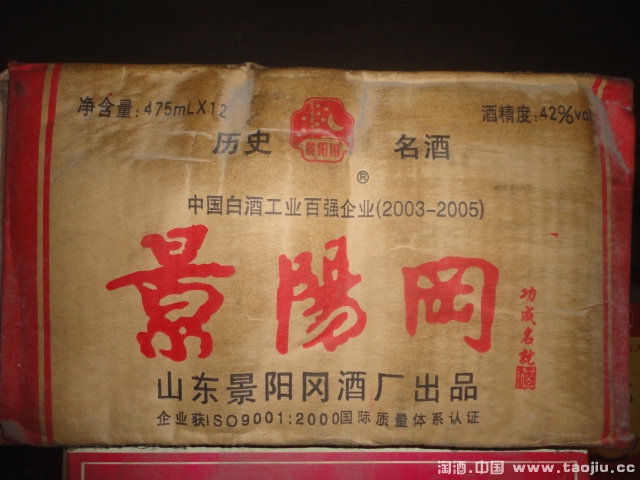 净含量:475mLX12
酒精度:42%vol
历史
景阳冈
名酒
®
中国白酒工业百强企业(2003-2005)
景陽岡
功成名就
酒
山东景阳冈酒厂出品
企业获ISO9001:2000国际质量体系认证
淘酒.中国 www.taojiu.cc